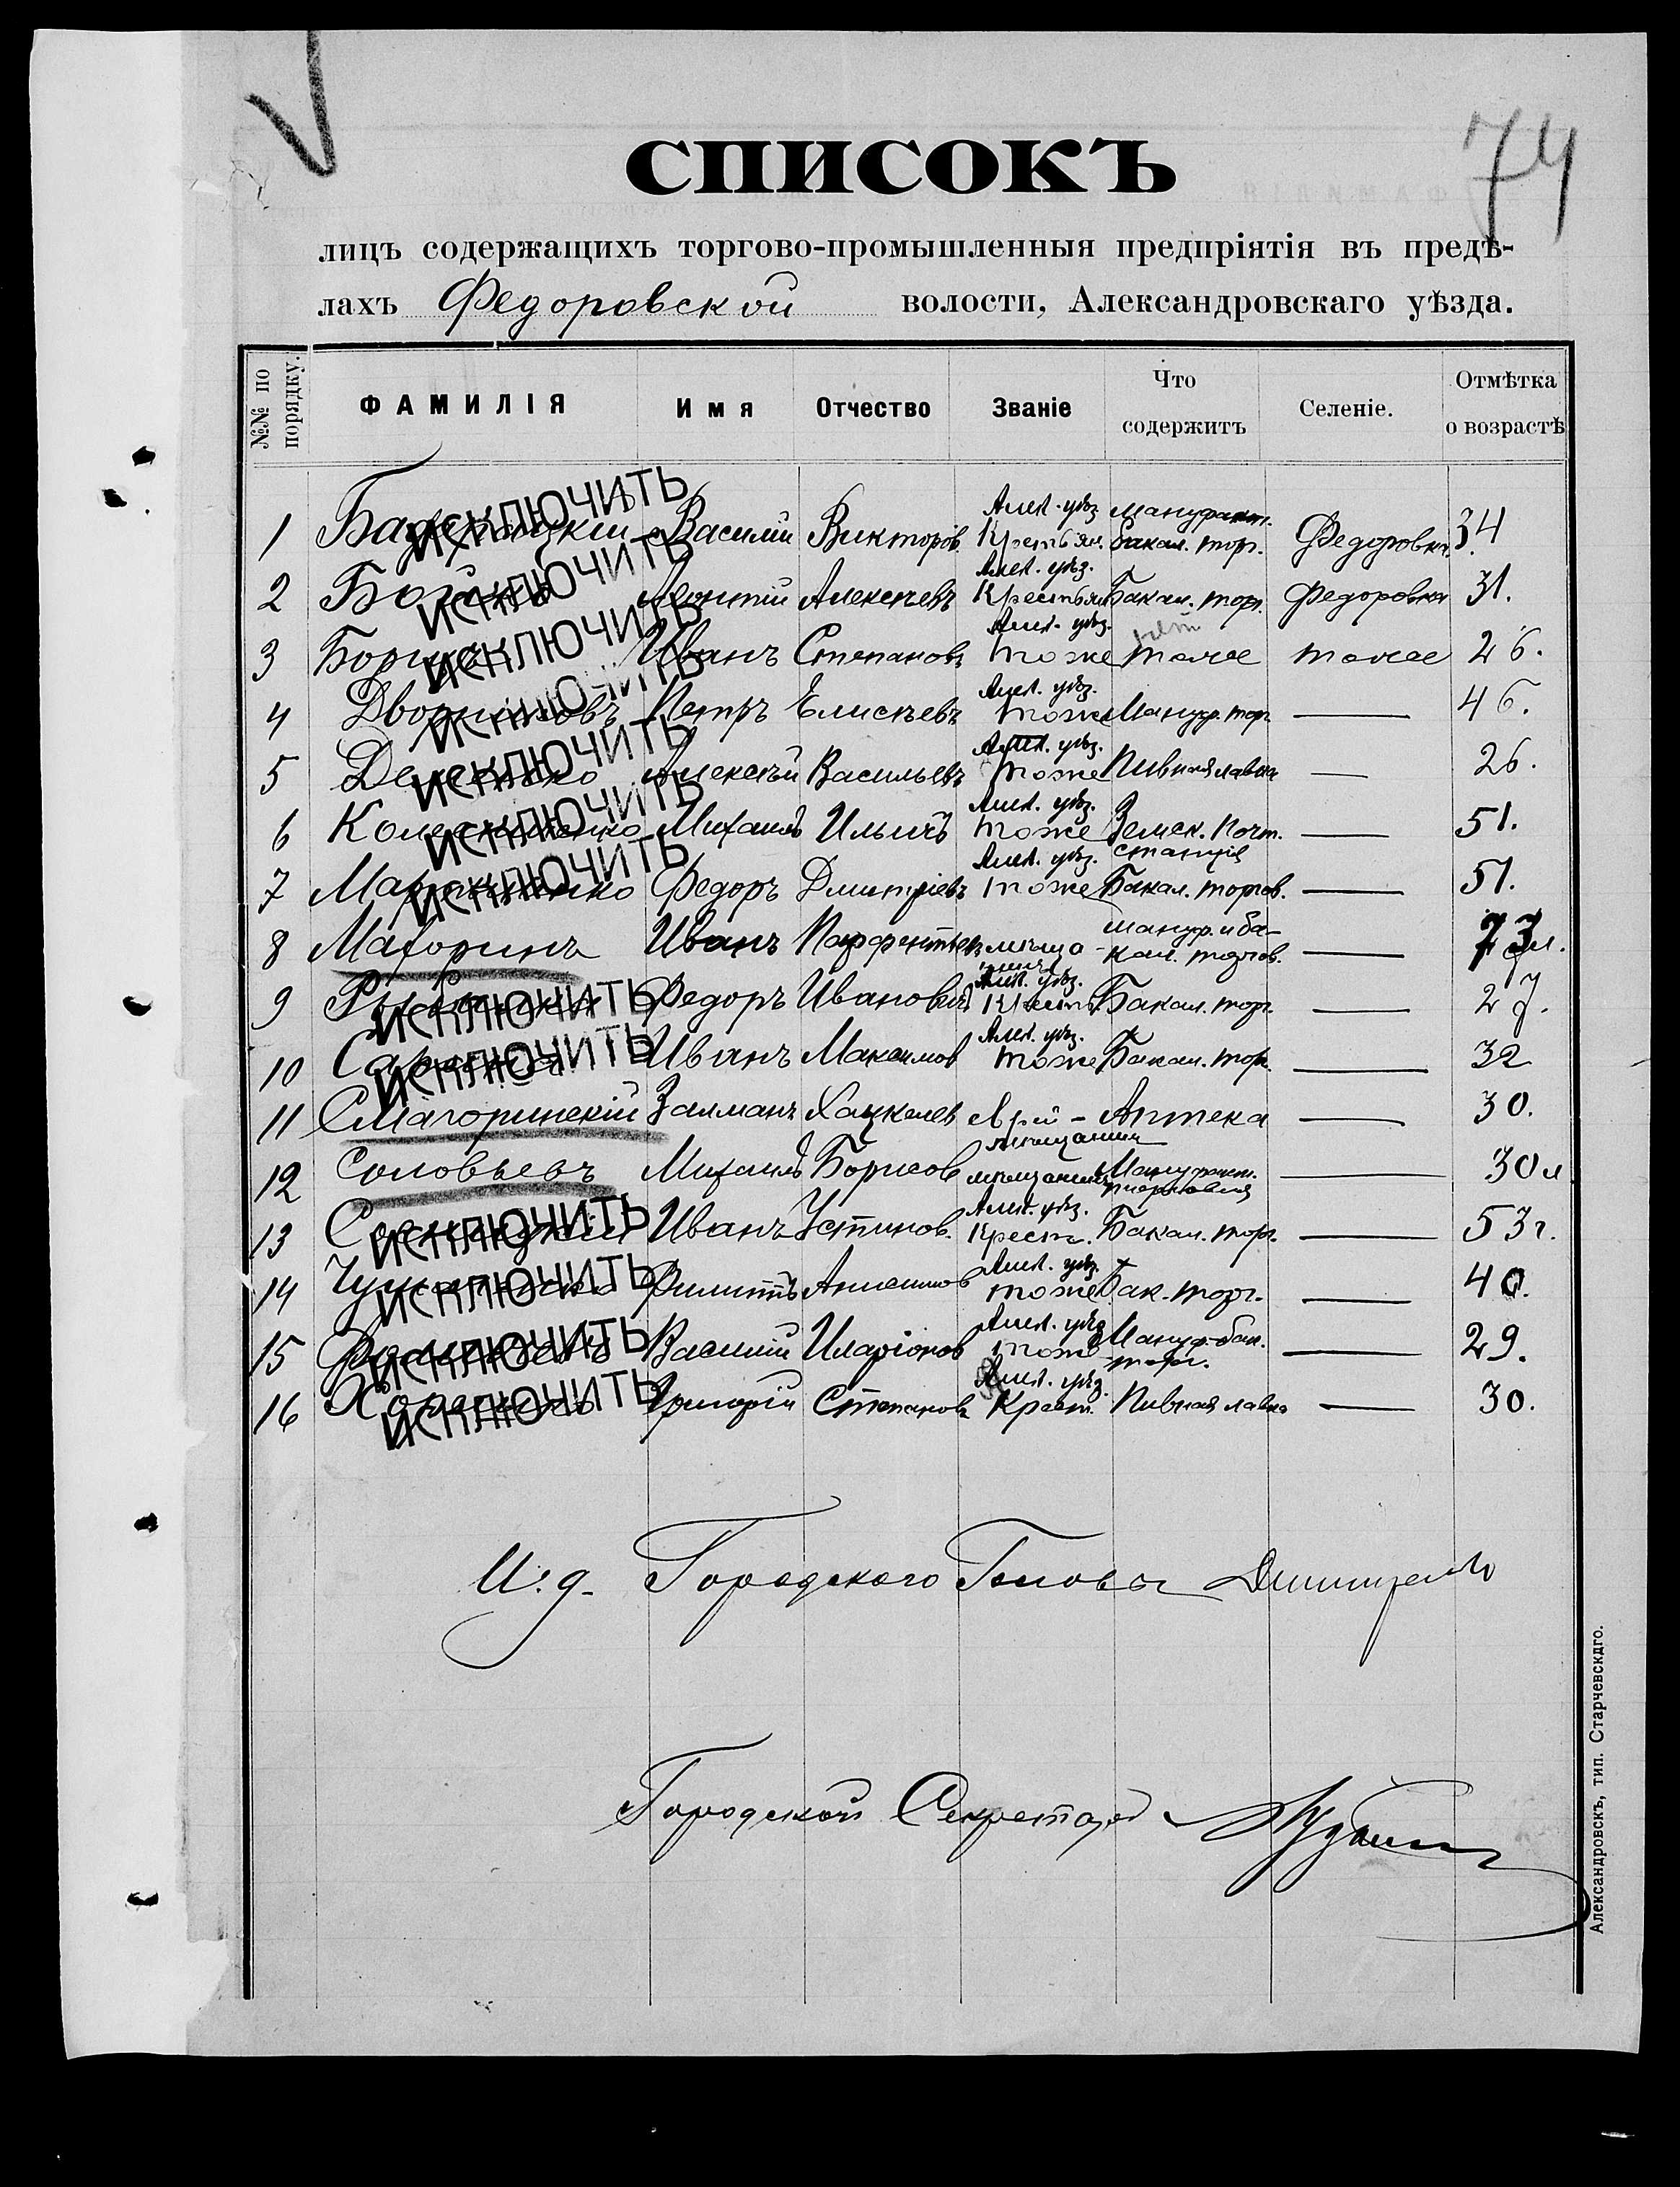 74
СПИСОКЪ
лицъ содержащихъ торгово-промышленныя предпріятія въ предѣ-
лахъ Федоровской волости, Александровскаго уѣзда.
№№ по порядку. ФАМИЛІЯ Имя Отчество Званіе Что содержитъ Селеніе. Отмѣтка о возрастѣ
Алек. уѣз. мануфакт.
1 ИСКЛЮЧИТЬ Василій Викторов. Крестьян. бакал. торг. Федоровка 34
Алек. уѣз.
2 ИСКЛЮЧИТЬ Леонтій Алексѣевъ Крестьян. Бакал. торг. Федоровка 31.
Алек. уѣз.
3 ИСКЛЮЧИТЬ Иванъ Степановъ тоже тоже тоже 26.
Алек. уѣз.
4 Дворниковъ ИСКЛЮЧИТЬ Петръ Елисѣевъ тоже Мануф. торг. — 46.
Алек. уѣз.
5 ИСКЛЮЧИТЬ Алексѣй Васильевъ тоже Пивная лавка — 26.
Алек. уѣз.
6 ИСКЛЮЧИТЬ Михаилъ Ильичъ тоже Земск. Почт. станція — 51.
Алек. уѣз.
7 ИСКЛЮЧИТЬ Федоръ Дмитріевъ тоже Бакал. торгов. — 51.
8 Махоринъ Иванъ Парфентьев мѣща- мануф. и ба-
кал. торгов. — 73 л.
Алек. уѣз.
9 ИСКЛЮЧИТЬ Федоръ Ивановичъ Крест. Бакал. торг. — 27.
Алек. уѣз.
10 ИСКЛЮЧИТЬ Иванъ Максимов тоже Бакал. торг. — 32
11 Смагоринскій Залманъ Хацкелев Аптека — 30.
мѣщанин
12 Соловьевъ Михаилъ Борисов мѣщанинъ Мануфакт. торговля — 30 л
Алек. уѣз.
13 ИСКЛЮЧИТЬ Иванъ Устинов. Крест. Бакал. торг. — 53 г.
Алек. уѣз.
14 ИСКЛЮЧИТЬ Филиппъ тоже Бак. торг. — 40.
Алек. уѣз.
15 ИСКЛЮЧИТЬ Василій Иларіонов тоже Мануф. бак. торг. — 29.
Алек. уѣз.
16 ИСКЛЮЧИТЬ Григорій Степановъ Крест. Пивная лавка — 30.
И. д. Городского Головы
Городской Секретарь
Александровскъ, тип. Старчевскаго.